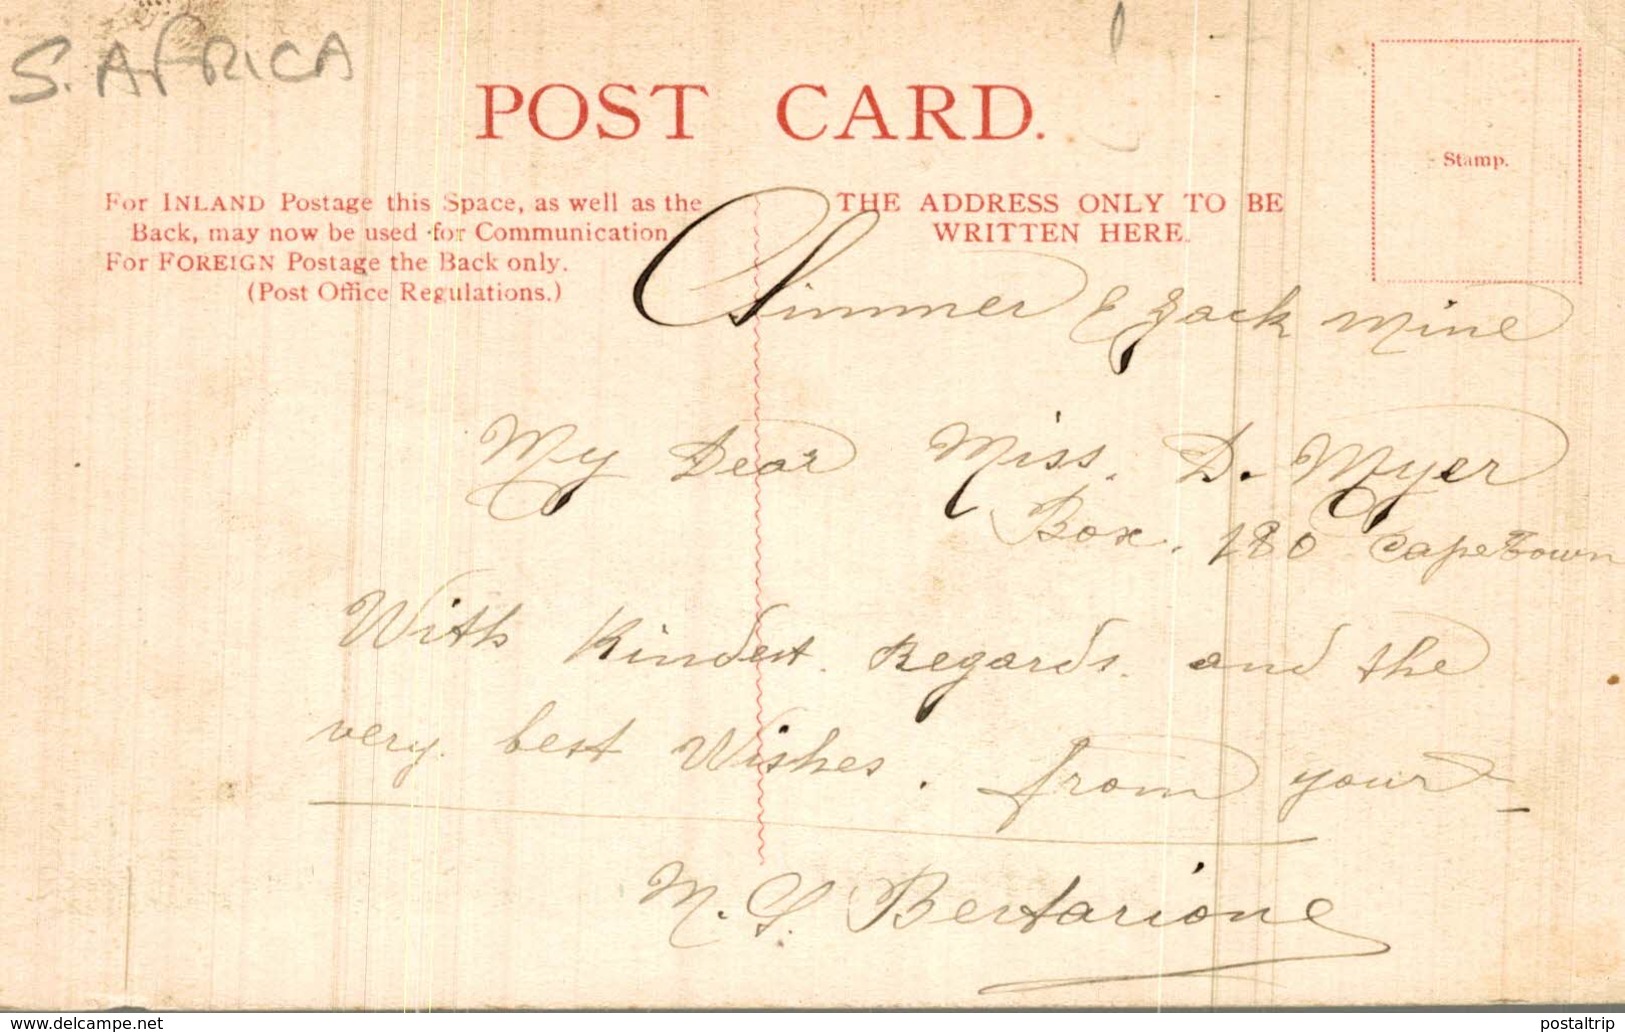 S. AFRICA
POST CARD.
Stamp.
For INLAND Postage this Space, as well as the
Back, may now be used for Communication
For FOREIGN Postage the Back only.
(Post Office Regulations.)
THE ADDRESS ONLY TO BE
WRITTEN HERE.
Simmer & Jack Mine
My Dear Miss. D. Myer
Box. 180 Capetown
With Kindest Regards. and the
very best Wishes. from your
M. S. Bertarione
www.delcampe.net
postaltrip